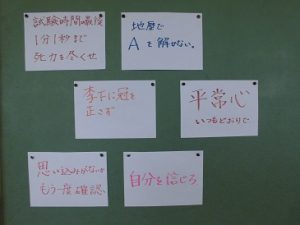 試験時間の最後
1分1秒まで
死力を尽くせ
地歴で
Aを解かない。
李下に冠を
正さず
平常心
いつもどおりで
思い込みがないか
もう一度確認
自分を信じろ